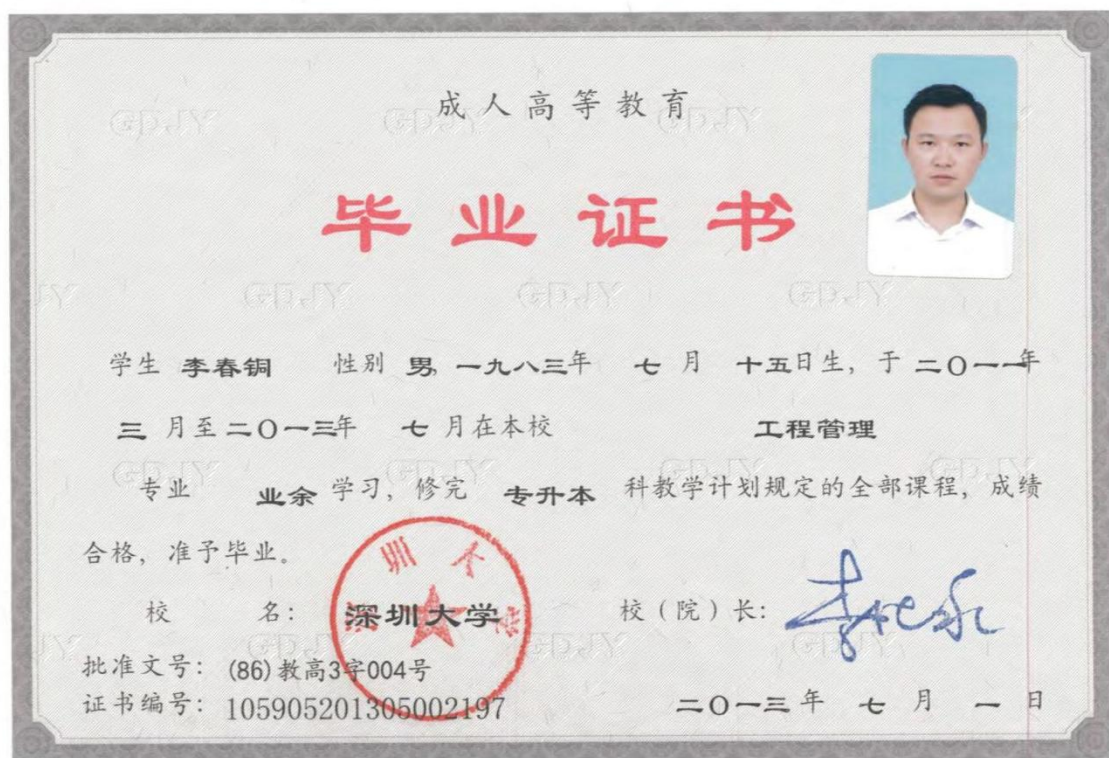 成人高等教育
毕业证书
学生 李春铜 性别 男, 一九八三年 七 月 十五日生, 于 二〇一一年
三 月至二〇一三年 七 月在本校 工程管理
专业 业余 学习, 修完 专升本 科教学计划规定的全部课程, 成绩
合格, 准予毕业。
校 名: 深圳大学 校(院)长:
批准文号: (86)教高3字004号
证书编号: 105905201305002197 二〇一三年 七 月 一 日
GDJY